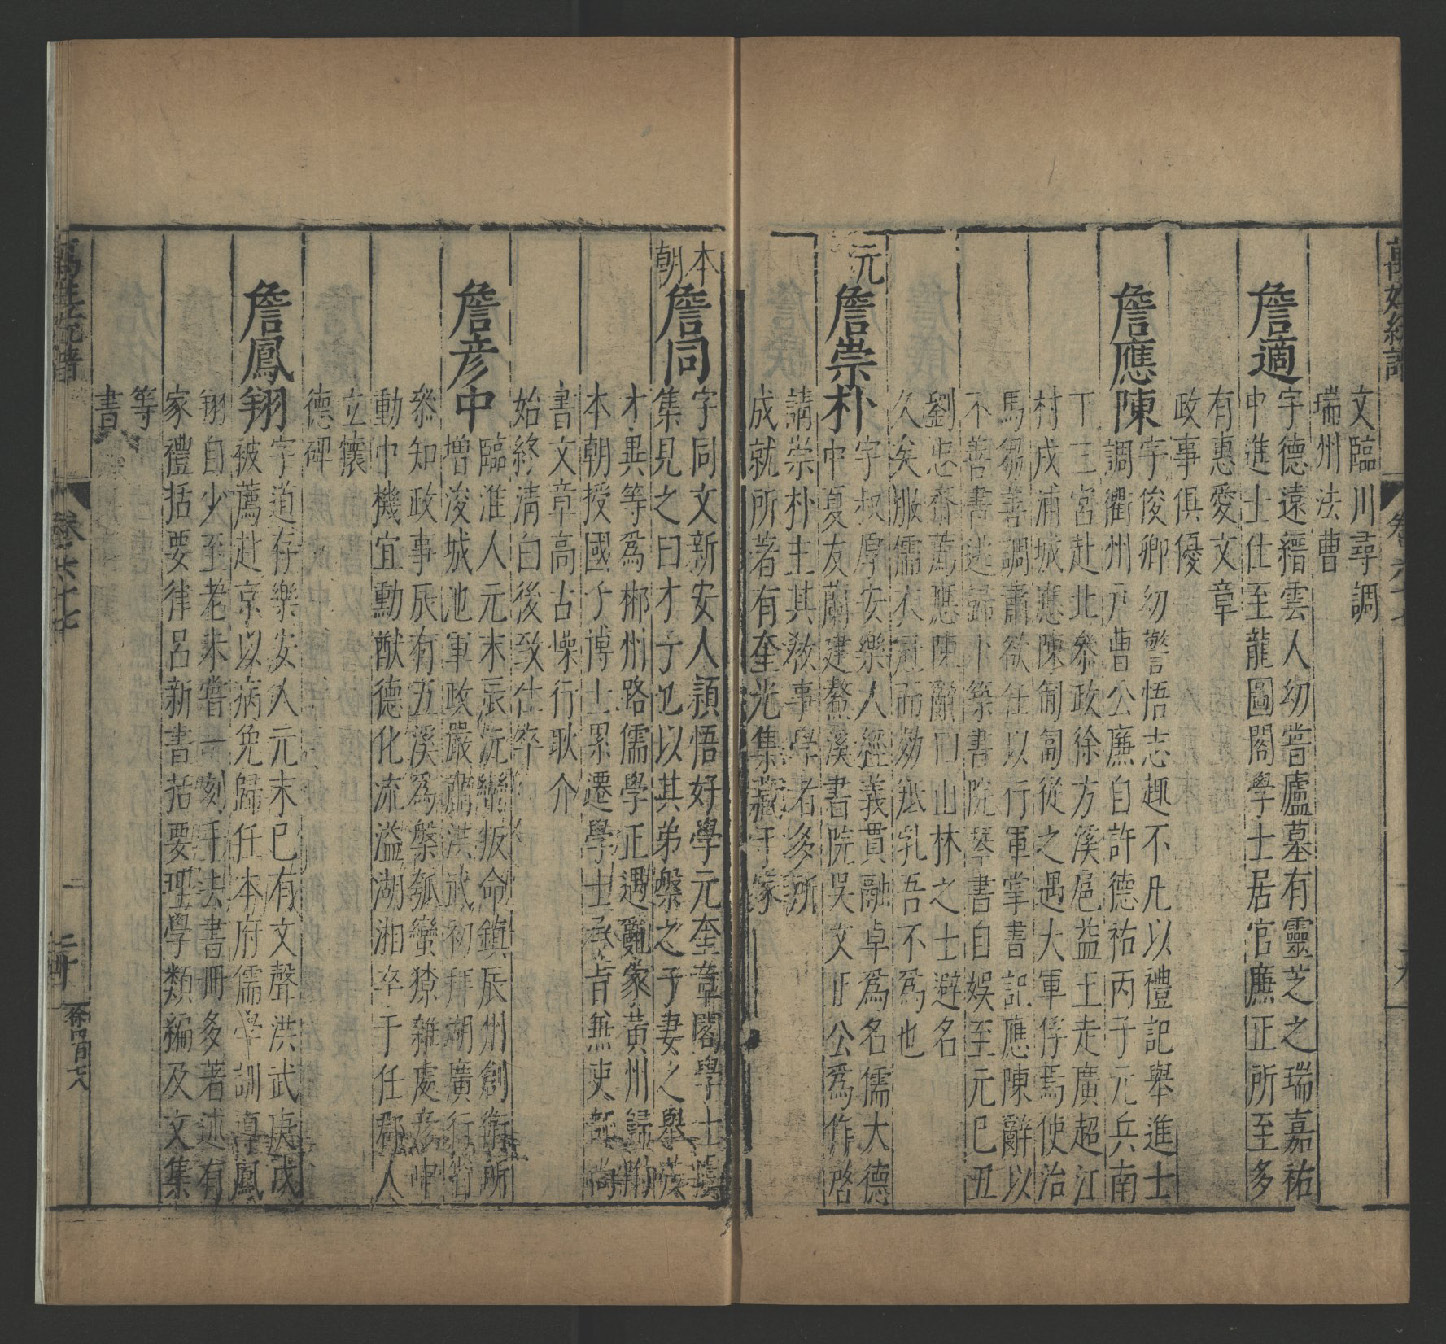 萬姓統譜
卷六十七
文臨川尋調
瑞州法曹
詹適
字德遠縉雲人幼嘗廬墓有靈芝之瑞嘉祐
中進士仕至龍圖閣學士居官廉正所至多
有惠愛文章
政事俱優
詹應陳
字俊卿幼警悟志趣不凡以禮記舉進士
調衢州戶曹公廉自許德祐丙子元兵南
下三宮赴北叅政徐方溪扈益王走廣超江
村戍浦城應陳匍匐從之遇大軍俘焉使治
馬芻善調護欲任以行軍掌書記應陳辭以
不善書逃歸
築書院琴書自娛至元己丑
劉忠齋薦應陳辭曰山林之士避名
久矣服儒衣冠而効
乳吾不為也
元
詹崇朴
字
厚安樂人經義貫融卓為名儒大德
中夏友蘭建鰲溪書院吳文正公為作啓
講崇朴主其教事學者多所
成就所著有奎光集藏于家
本朝
詹同
字同文新安人穎悟好學元奎章閣學士虞
集見之曰才子也以其弟槃之子妻之舉茂
才異等為郴州路儒學正遇亂家黃川歸附
本朝授國子博士累遷學士承旨無吏部尚
書文章高古操行耿介
始終清白後致仕卒
詹彥中
臨淮人元末辰沅蠻叛命鎮辰州創衛所
增浚城池軍政嚴肅洪武初拜湖廣行省
叅知政事辰有五溪為槃瓠蠻獠雜處彥中
動中機宜勳猷德化流溢湖湘卒于任郡人
立
德碑
詹鳳翔
字道存樂安人元末已有文聲洪武庚戌
被薦赴京以病免歸任本府儒學訓導鳳
翔自少至老未嘗一刻手去書冊多著述有
家禮括要律呂新書括要理學類編及文集
等
書
萬姓統譜
卷六十七